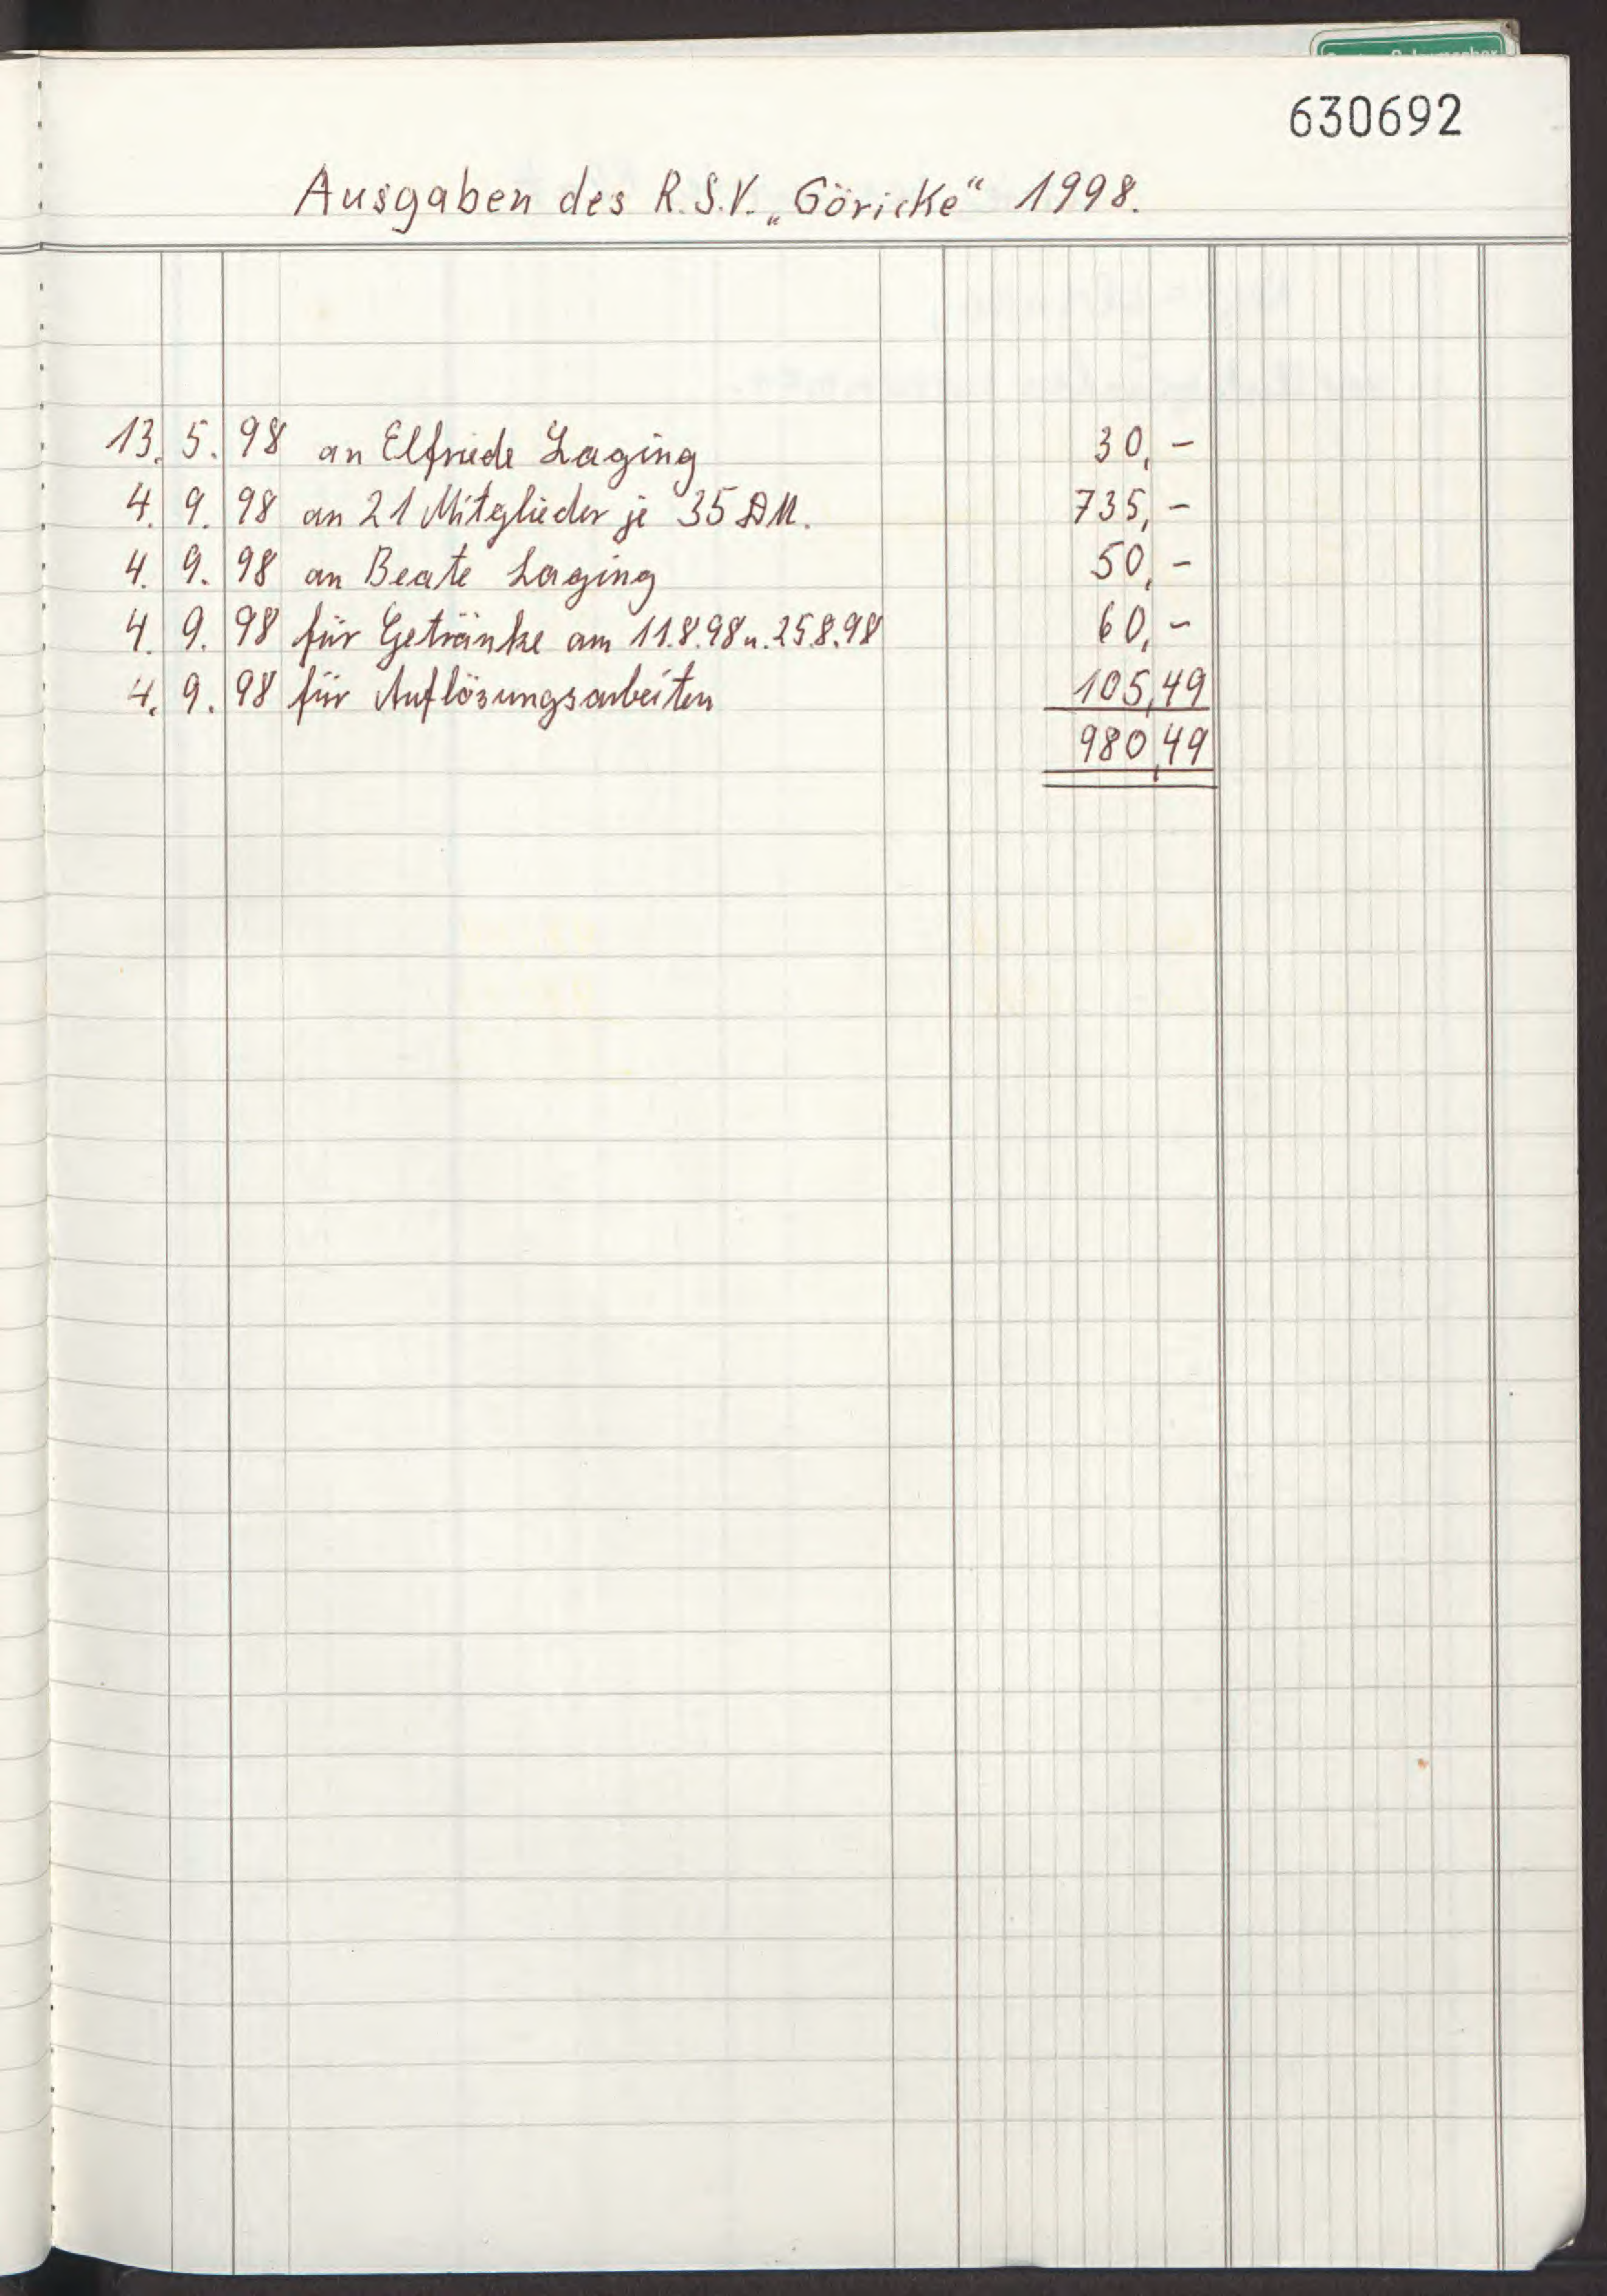 630692
Ausgaben des R.S.V. „Göricke“ 1998.
13. 5. 98 an Elfriede Laging 30,-
4. 9. 98 an 21 Mitglieder je 35 DM. 735,-
4. 9. 98 an Beate Laging 50,-
4. 9. 98 für Getränke am 11.8.98 u. 25.8.98 60,-
4. 9. 98 für Auflösungsarbeiten 105,49
980,49